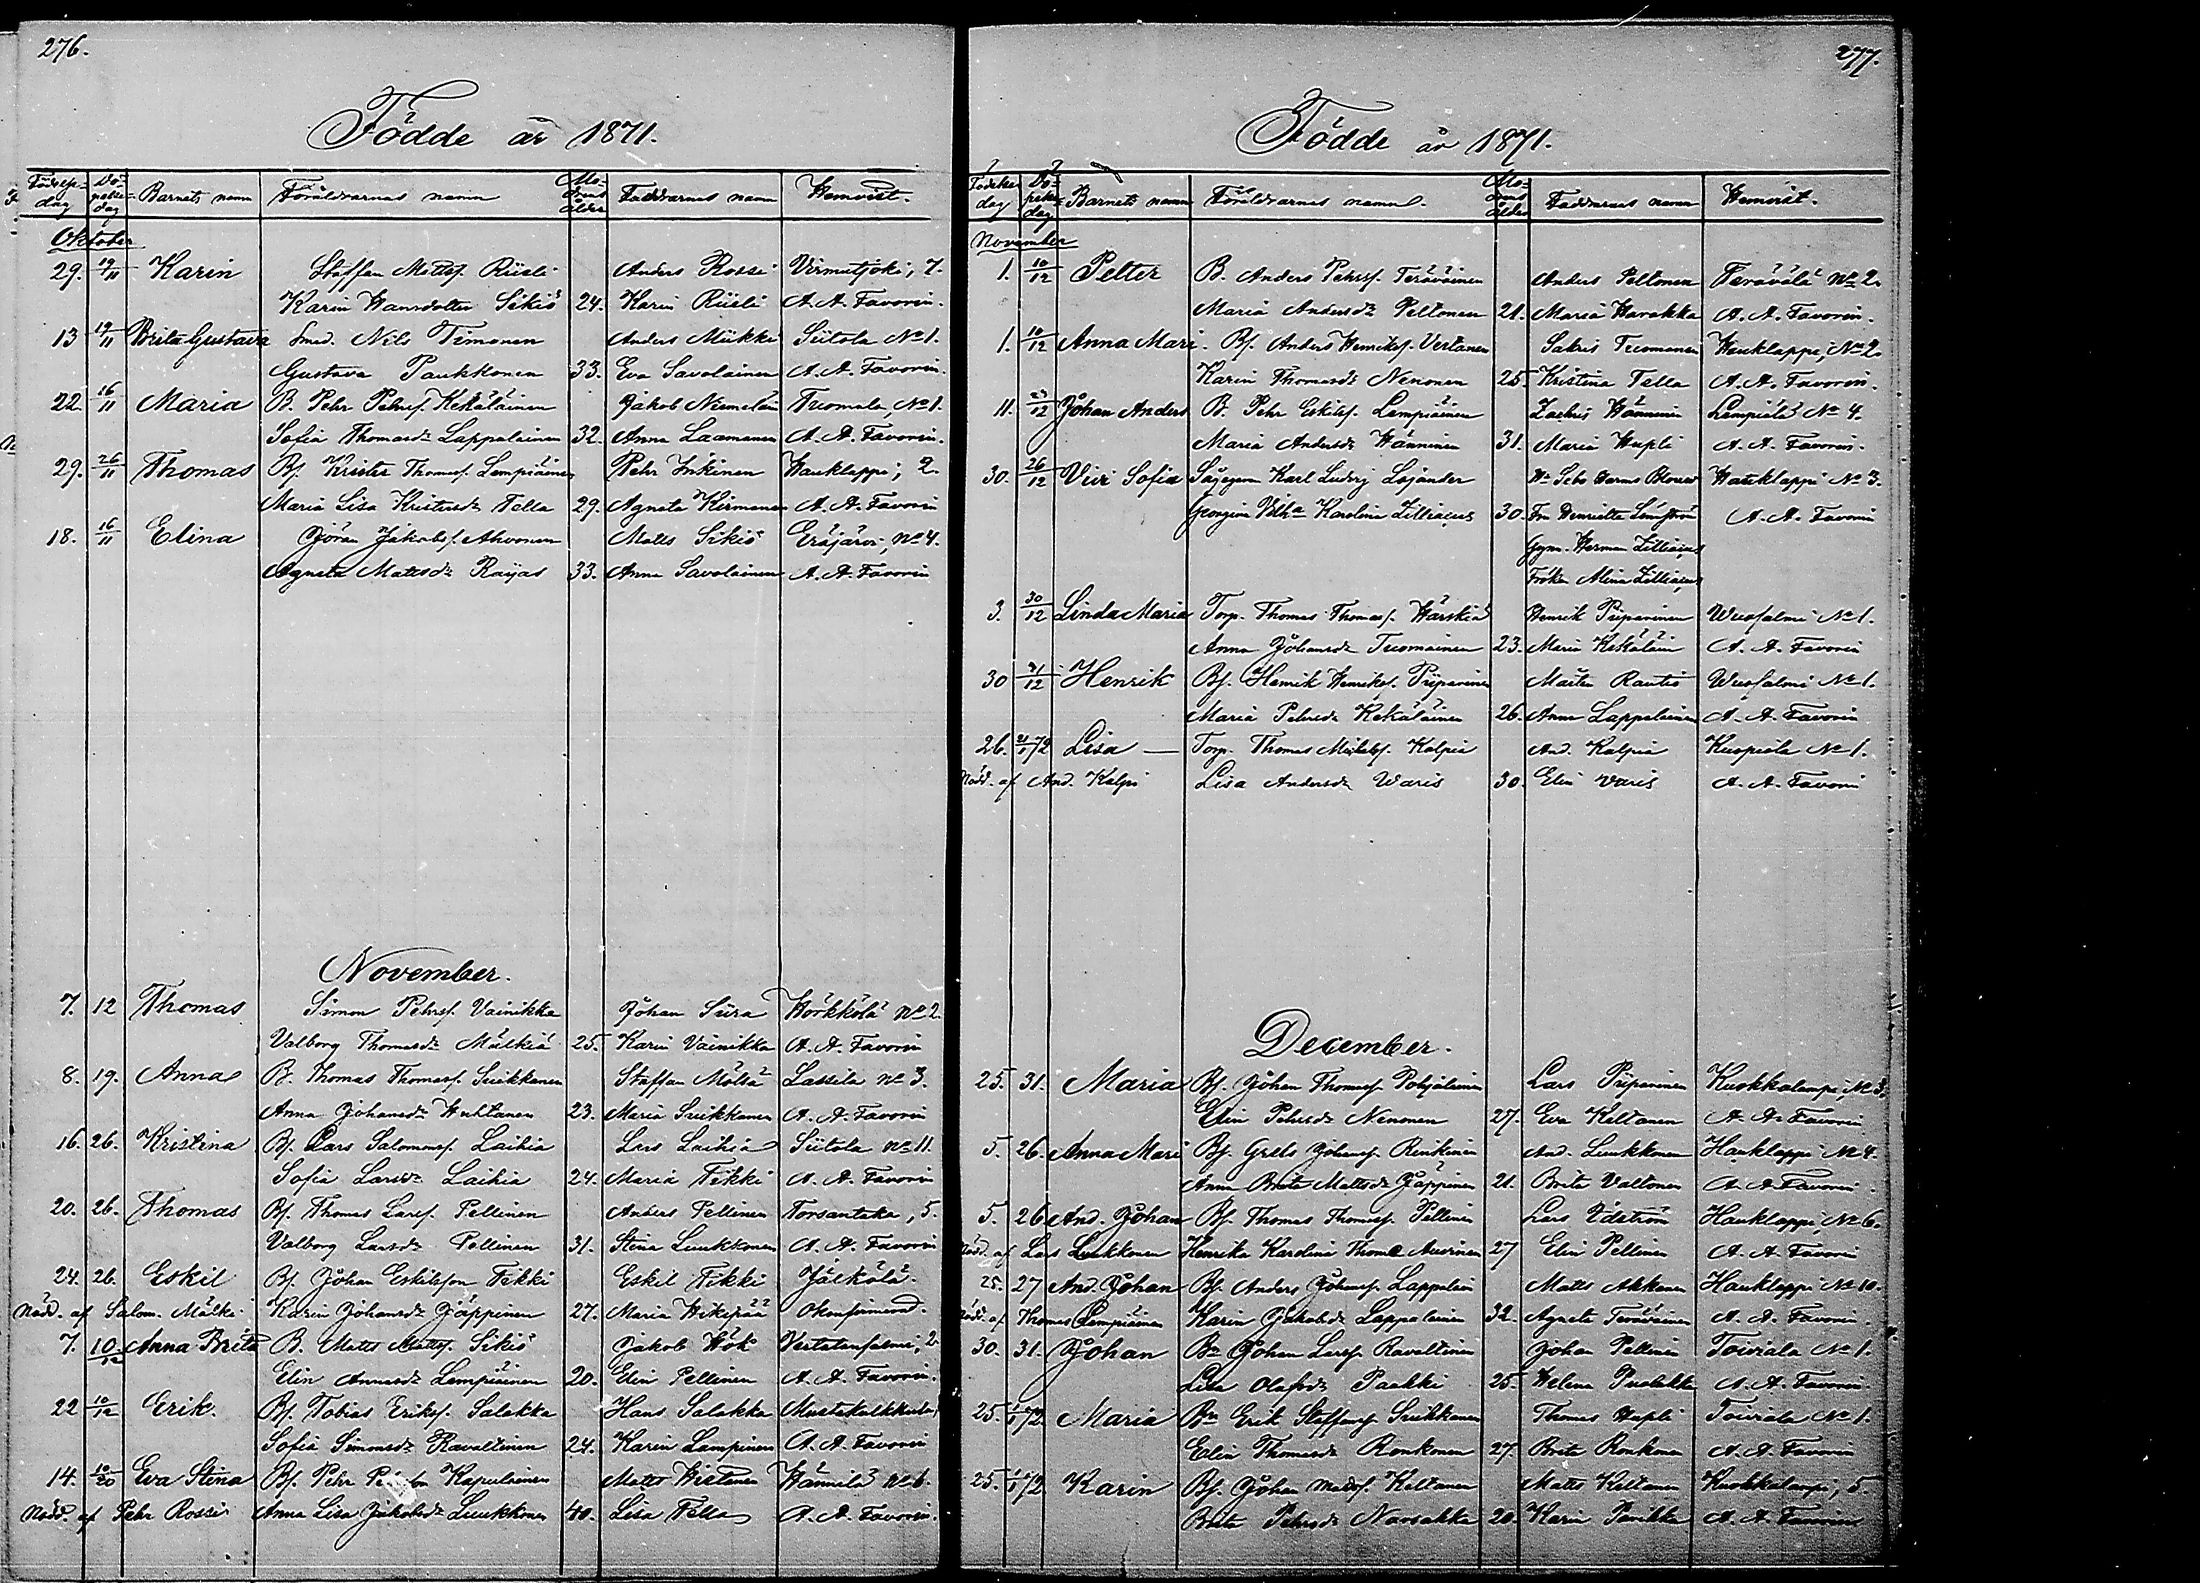 276.
Födde år 1871.
Födelse-dag Döpelse-dag Barnets namn Föräldrarnas namn Moderns ålder Faddrarnas namn Hemvist.
Oktober
29. 19/11 Karin Staffan Mattss. Riisli Anders Rossi Virmutjoki, 7.
Karin Hansdotter Sikiö 24. Karin Riisli A. A. Favorin.
13 19/11 Brita Gustava Smed. Nils Timonen Anders Mükki Siitola No 1.
Gustava Paukkonen 33. Eva Savolainen A. A. Favorin.
22. 16/11 Maria B. Pehr Pehrss. Kekäläinen Jakob Niemeläin Tuomala, No 1.
Sofia Thomasdr Lappalainen 32. Anna Laamanen A. A. Favorin.
29. 26/11 Thomas Bf. Krister Thomass. Lempiäinen Pehr Inkinen Hauklappi, 2.
Maria Lisa Kristersdr Tella 29. Agneta Kirmanen A. A. Favorin
18. 16/11 Elina Göran Jakobss. Ahvonen Matts Sikiö Eräjärvi, No 4.
Agneta Mattsdr Rayas 33. Anna Savolainen A. A. Favorin
November.
7. 12 Thomas Simon Pehrss. Vainikka Johan Siira Hörkkölä No 2.
Valborg Thomasdr Mälkiä 25. Karin Vainikka A. A. Favorin
8. 19. Anna B. Thomas Thomass. Suikkanen Staffan Mölsä Lassila No 3.
Anna Johansdr Huhtanen 23. Maria Suikkanen A. A. Favorin
16. 26. Kristina Bf. Lars Salomonss. Laihia Lars Laihia Siitola No 11.
Sofia Larsdr Laihia 24. Maria Tikki A. A. Favorin
20. 26. Thomas Bf. Thomas Larss. Pellinen Anders Pellinen Torsantaka, 5.
Valborg Larsdr Pellinen 31. Stina Luukkonen A. A. Favorin
24. 26. Eskil Bf. Johan Eskilsson Tikki Eskil Tikki Jälkölä.
Nödd. af Salom. Mälki. Karin Johansdr Jäppinen 27. Maria
7. 10/12 Anna Brita B. Matts Mattss. Sikiö Jakob Hök Vertatensalmi, 2.
Elin Lempiäinen 20. Elin Pellinen A. A. Favorin.
22 10/12 Erik. Bf. Tobias Erikss. Salakka Hans Salakka
Sofia Simonsdr Ravattinen 24. Karin Lampinen A. A. Favorin
14. 10/20 Eva Stina Bf. Pehr Kapulainen Matts Hietanen Hännilä No 6.
Nödd. af Pehr Rossi Anna Lisa Jakobsdr Luukkonen 40. Lisa Tella A. A. Favorin.
277.
Födde år 1871.
Födelse dag Döpelse dag Barnets namn Föräldrarnas namn. Moderns ålder Faddrarnas namn Hemvist.
November
1. 10/12 Petter B. Anders Pehrss. Teräväinen Anders Peltonen Terävälä No 2.
Maria Andersdr Peltonen 21. Maria Harakka A. A. Favorin.
1. 10/12 Anna Mari. Bf. Anders Henrikss. Vertanen Sakris Tuomanen Hauklappi, No 2.
Karin Thomasdr Nenonen 25 Kristina Tella A. A. Favorin.
11. 23/12 Johan Anders B. Pehr Eskilss. Lempiäinen Zachris Hänninen Lempiälä No 4.
Maria Andersdr Hänninen 31. Maria Hupli A. A. Favorin.
30. 26/12 Vivi Sofia Sågegaren Karl Ludvig Löjander Hauklappi No 3.
Georgina Karolina Zilliacus 30. Fru Henrietta A. A. Favorin
Gymn. Herman Zilliacus
Fröken Alina Zilliacus
3. 30/12 Linda Maria Torp. Thomas Thomass. Härskiä Henrik Piiparinen Wuosalmi No 1.
Anna Johansdr Tuomainen 23. Maria Kekäläin A. A. Favorin
30 31/12 Henrik Bf. Henrik Henrikss. Piiparinen Mårten Rautio Wuosalmi No 1.
Maria Pehrsdr Kekäläinen 26. Anna Lappalainen A. A. Favorin
26. 21/1 72 Lisa — Torp. Thomas Kalpia And. Kalpia Kuopiala No 1.
Nödd. af And. Kalpi Lisa Andersdr Waris 30. Elin Varis A. A. Favorin
December.
25. 31. Maria Bf. Johan Thomass. Pohjalainen Lars Piiparinen Kuokkalampi, No 3.
Elin Pehrsdr Nenonen 27. Eva Keltanen A. A. Favorin
5. 26. Anna Mari Bf. Grels Johanss. Rinkinen And. Luukkonen Hauklappi No 4.
Anna Brita Mattsdr Jäppinen 21. Brita Valtonen A. A. Favorin.
5. 26 And. Johan Bf. Thomas Thomass. Pellinen Lars Idström Hauklappi, No 6.
Nödd. af Lars Luukkonen Henrika Karolina 27 Elin Pellinen A. A. Favorin
25. 27 And. Johan Bf. Anders Johanss. Lappalain Matts Akkanen Hauklappi No 10.
Nödd. af Thomas Lempiäinen Karin Jakobsdr Lappalainen 32. Agneta Teräväinen A. A. Favorin.
30. 31. Johan Bn Johan Larss. Ravattinen Johan Pellinen Toiviala No 1.
Lisa Olafsdr Paakki 25. Helena Puolakka A. A. Favorin.
25. 1/1 72. Maria Bn Erik Staffanss. Suikkanen Thomas Hupli Toiviala No 1.
Elin Thomasdr Ronkonen 27. Brita Ronkonen A. A. Favorin
25. 1/1 72 Karin Bf. Johan Madss. Keltanen Matts Keltanen Kuokkalampi, 5.
Brita Pehrsdr Narsakka 20. Karin Parikka A. A. Favorin